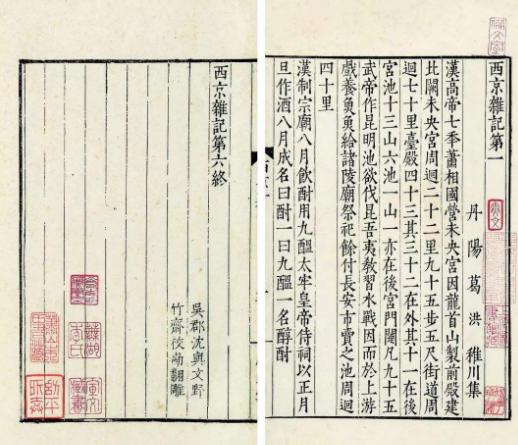 西京雜記第一
丹陽葛洪稚川集
漢高帝七秊蕭相國營未央宮因龍首山製前殿建
北闕未央宮周迴二十二里九十五步五尺街道周
迴七十里臺殿四十三其三十二在外其十一在後
宮池十三山六池一山一亦在後宮門闥凡九十五
武帝作昆明池欲伐昆吾夷教習水戰因而於上游
戲養魚魚給諸陵廟祭祀餘付長安市賣之池周迴
四十里
漢制宗廟八月飲酎用九醞太牢皇帝侍祠以正月
旦作酒八月成名曰酎一曰九醞一名醇酎
西京雜記第六終
吳郡沈與文野
竹齋校勘翻雕